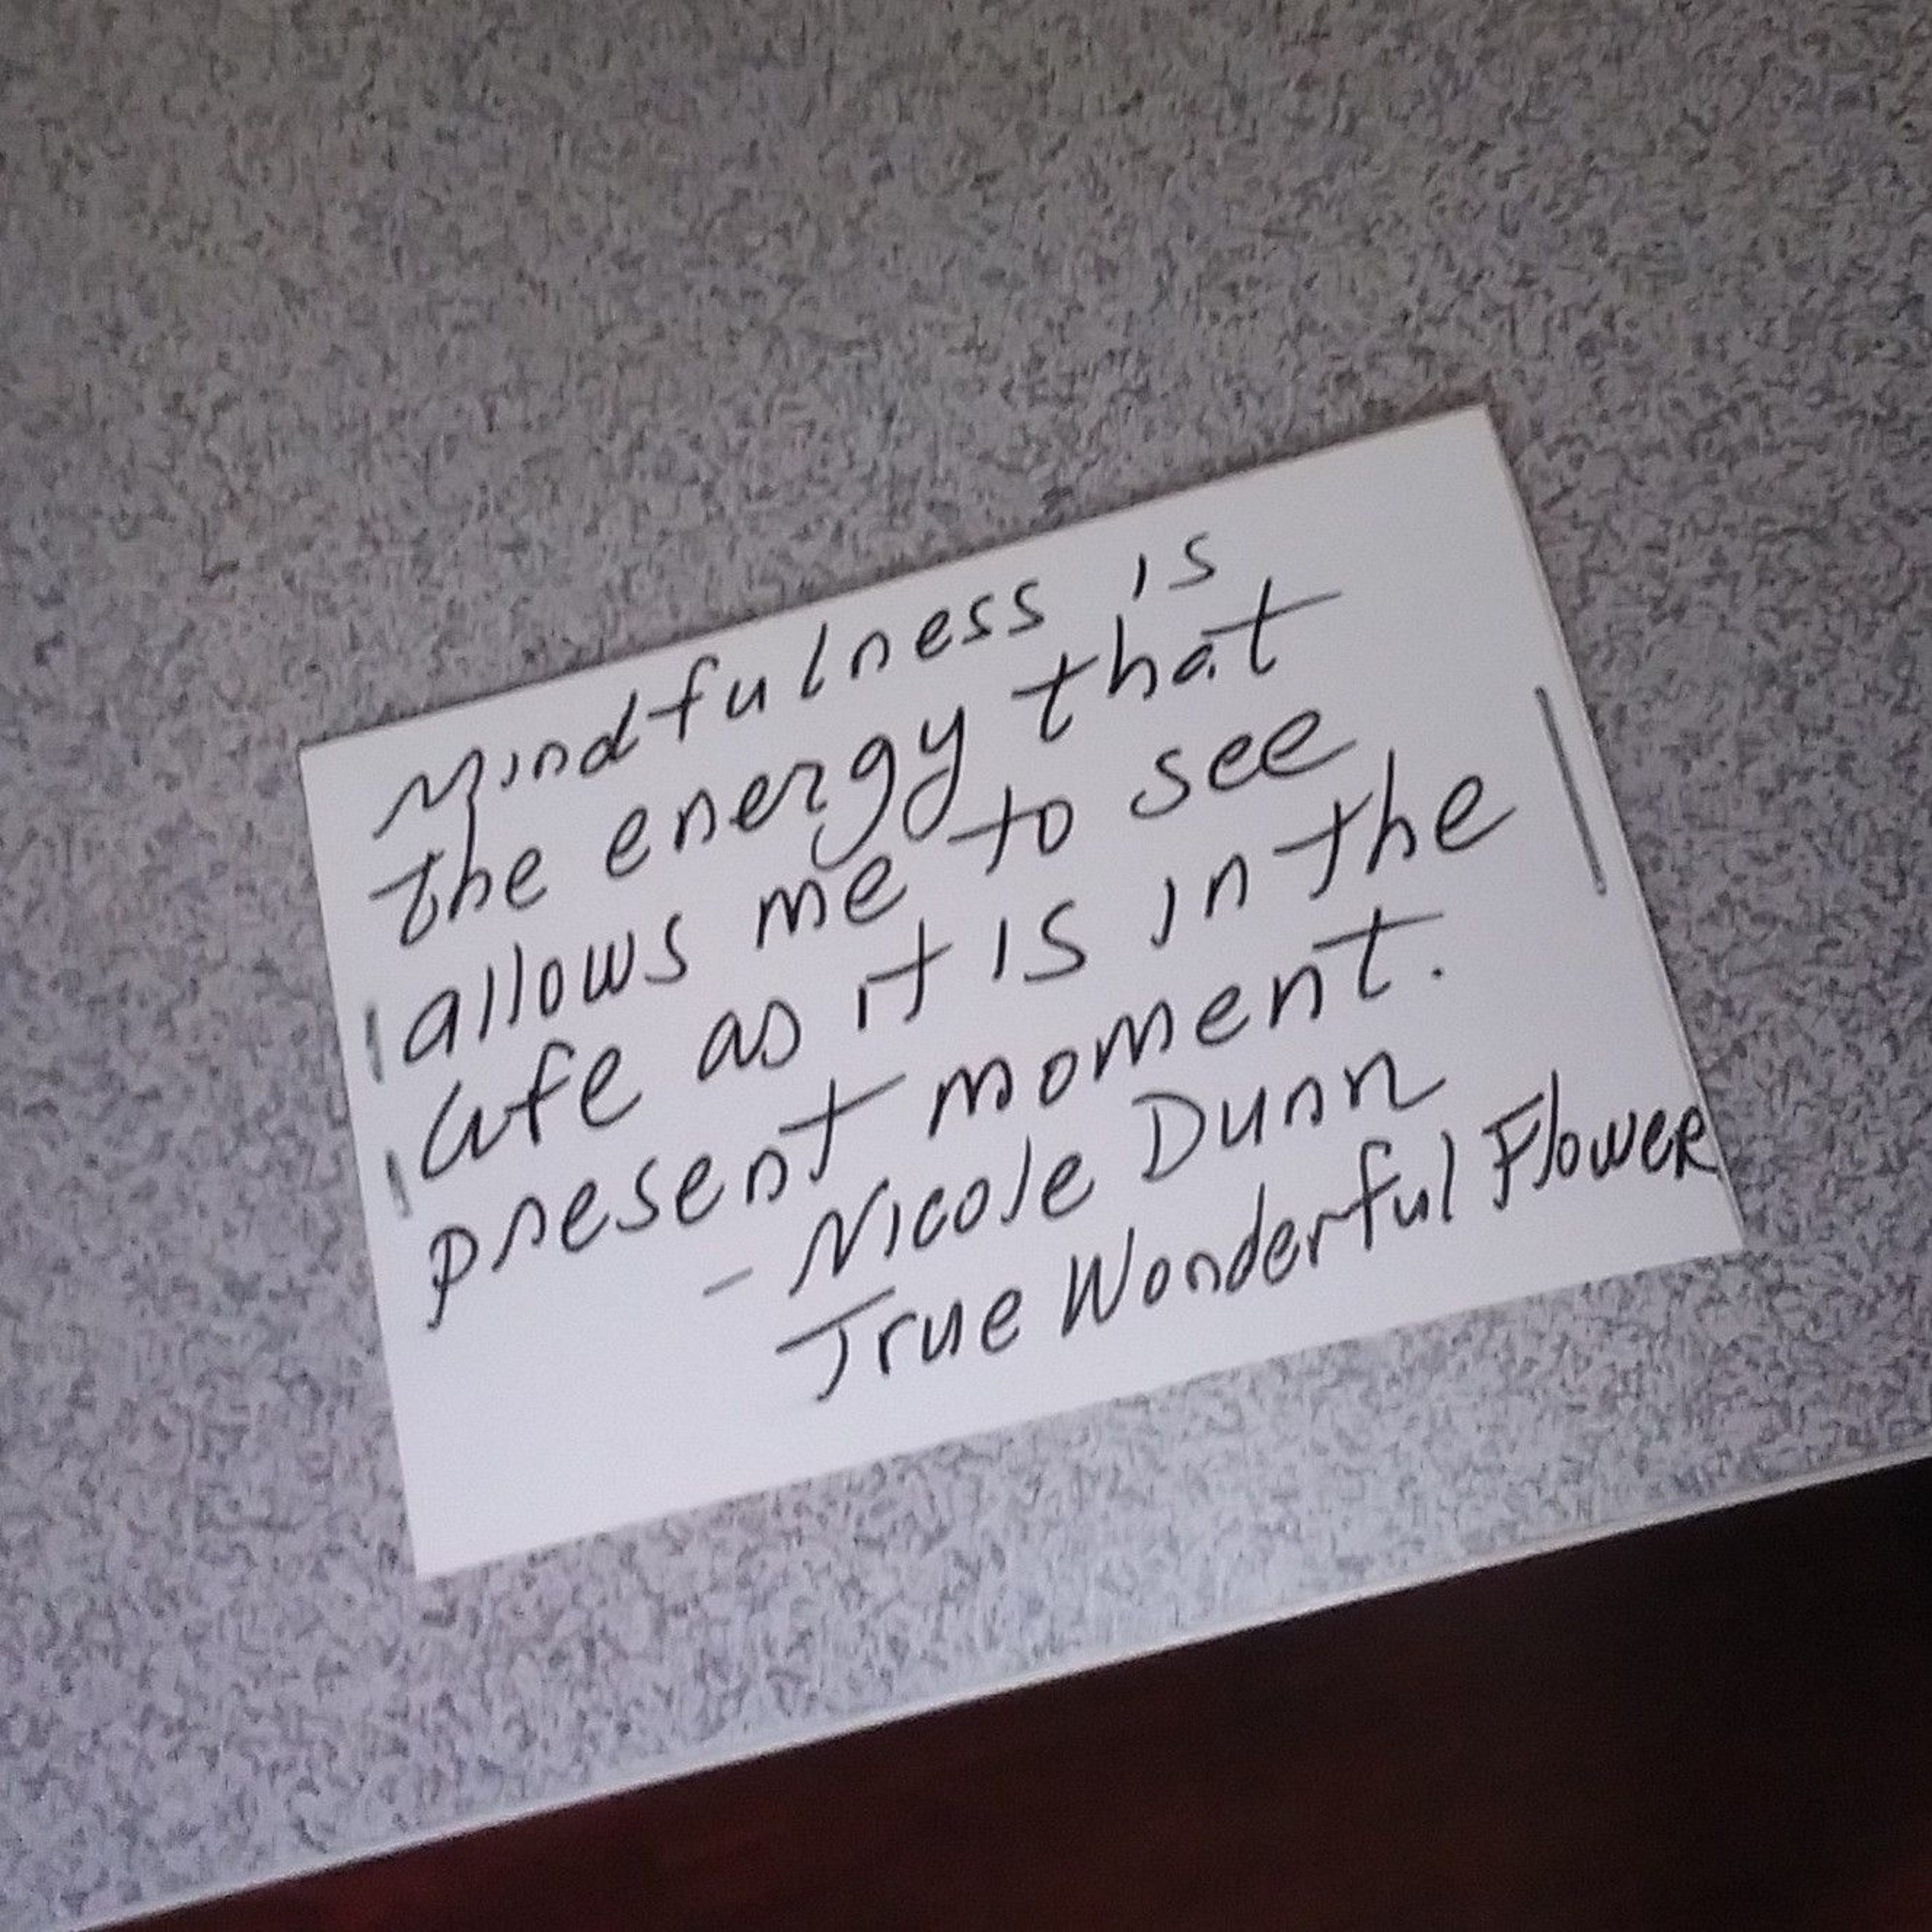 Mindfulness is
the energy that
allows me to see
life as it is in the
present moment.
- Nicole Dunn
True Wonderful Flower